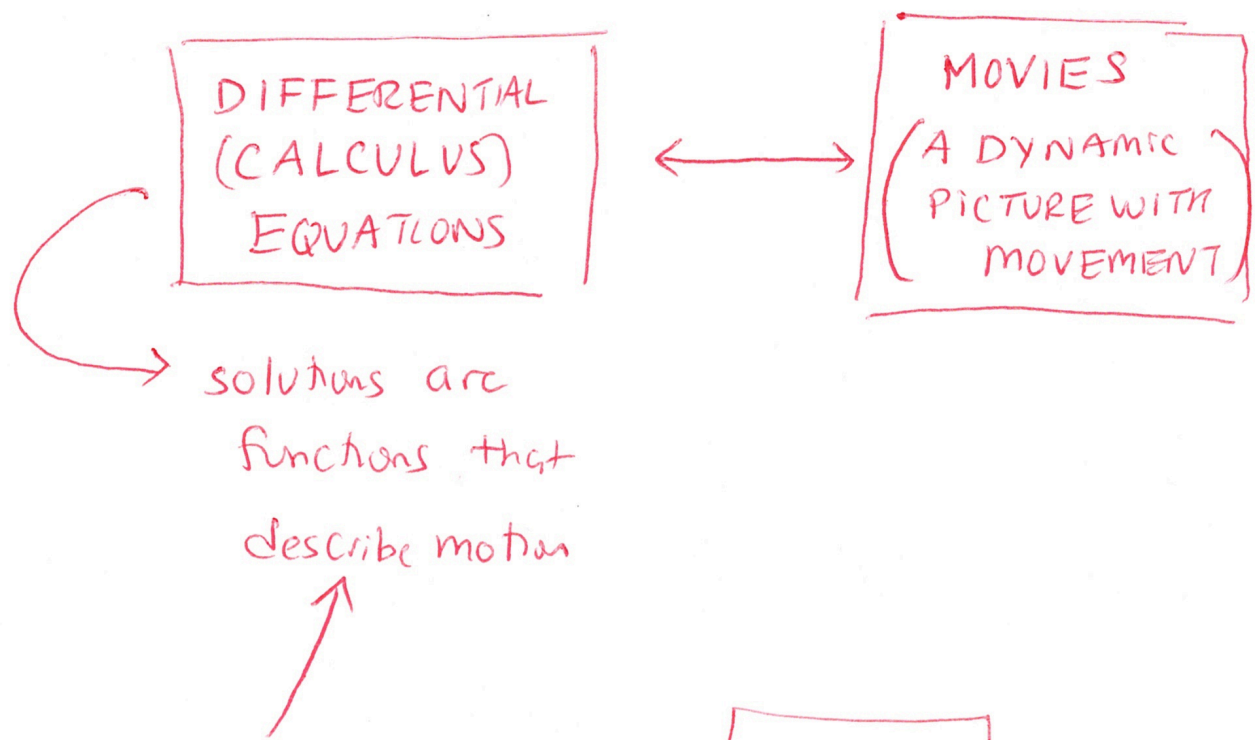 DIFFERENTIAL
(CALCULUS)
EQUATIONS
MOVIES
(A DYNAMIC
PICTURE WITH
MOVEMENT)
solutions are
functions that
describe motion